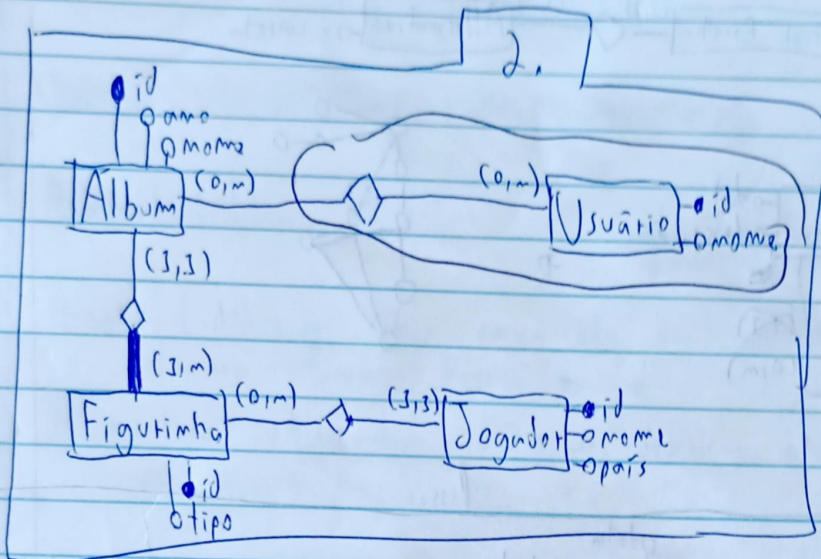 2.
id
ano
nome
Álbum
(0,n)
(0,n)
Usuário
id
nome
(1,1)
(1,n)
Figurinha
(0,n)
(1,1)
Jogador
id
nome
país
id
tipo